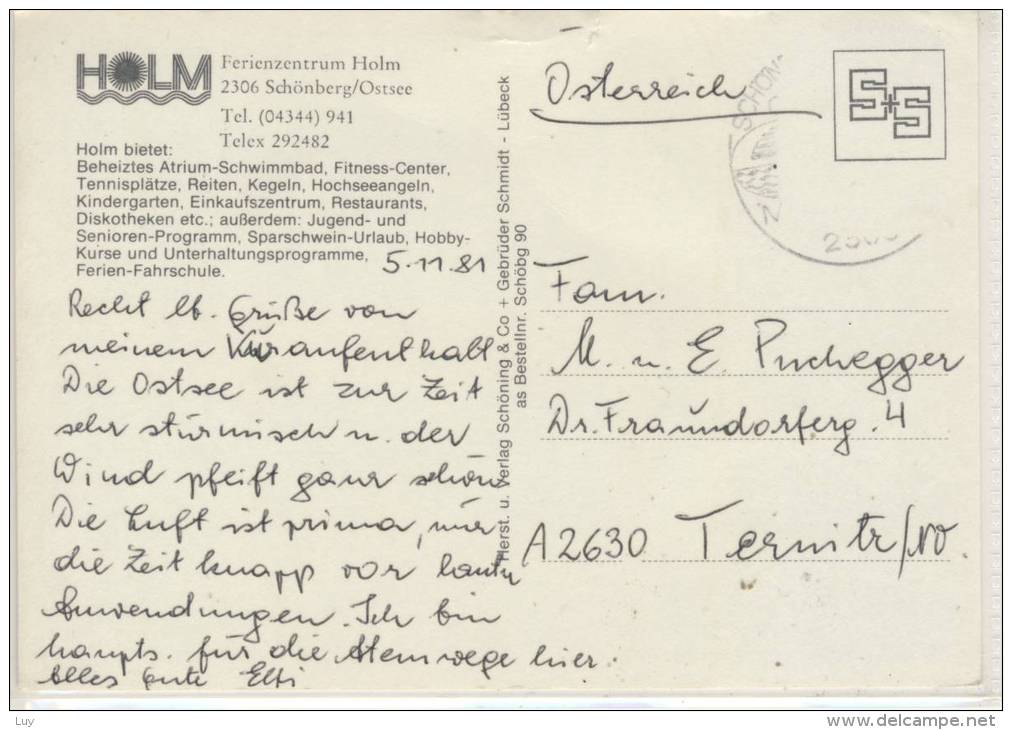 HOLM
Ferienzentrum Holm
2306 Schönberg/Ostsee
Tel. (04344) 941
Telex 292482
Holm bietet:
Beheiztes Atrium-Schwimmbad, Fitness-Center,
Tennisplätze, Reiten, Kegeln, Hochseeangeln,
Kindergarten, Einkaufszentrum, Restaurants,
Diskotheken etc.; außerdem: Jugend- und
Senioren-Programm, Sparschwein-Urlaub, Hobby-
Kurse und Unterhaltungsprogramme,
Ferien-Fahrschule.
5.11.81
Recht lb. Grüße von
meinem Kuraufenthalt
Die Ostsee ist zur Zeit
sehr stürmisch u. der
Wind pfeift ganz schön
Die Luft ist prima, nur
die Zeit knapp vor lauter
Anwendungen. Ich bin
haupts. für die Atemwege hier.
Alles Gute Elfi
Herst. u. Verlag Schöning & Co + Gebrüder Schmidt - Lübeck
as Bestellnr. Schöbg 90
Österreich
SCHÖN
S+S
Fam.
M. u. E. Puchegger
Dr. Fraundorferg. 4
A2630 Ternitz/NÖ.
Luy
delcampe.net